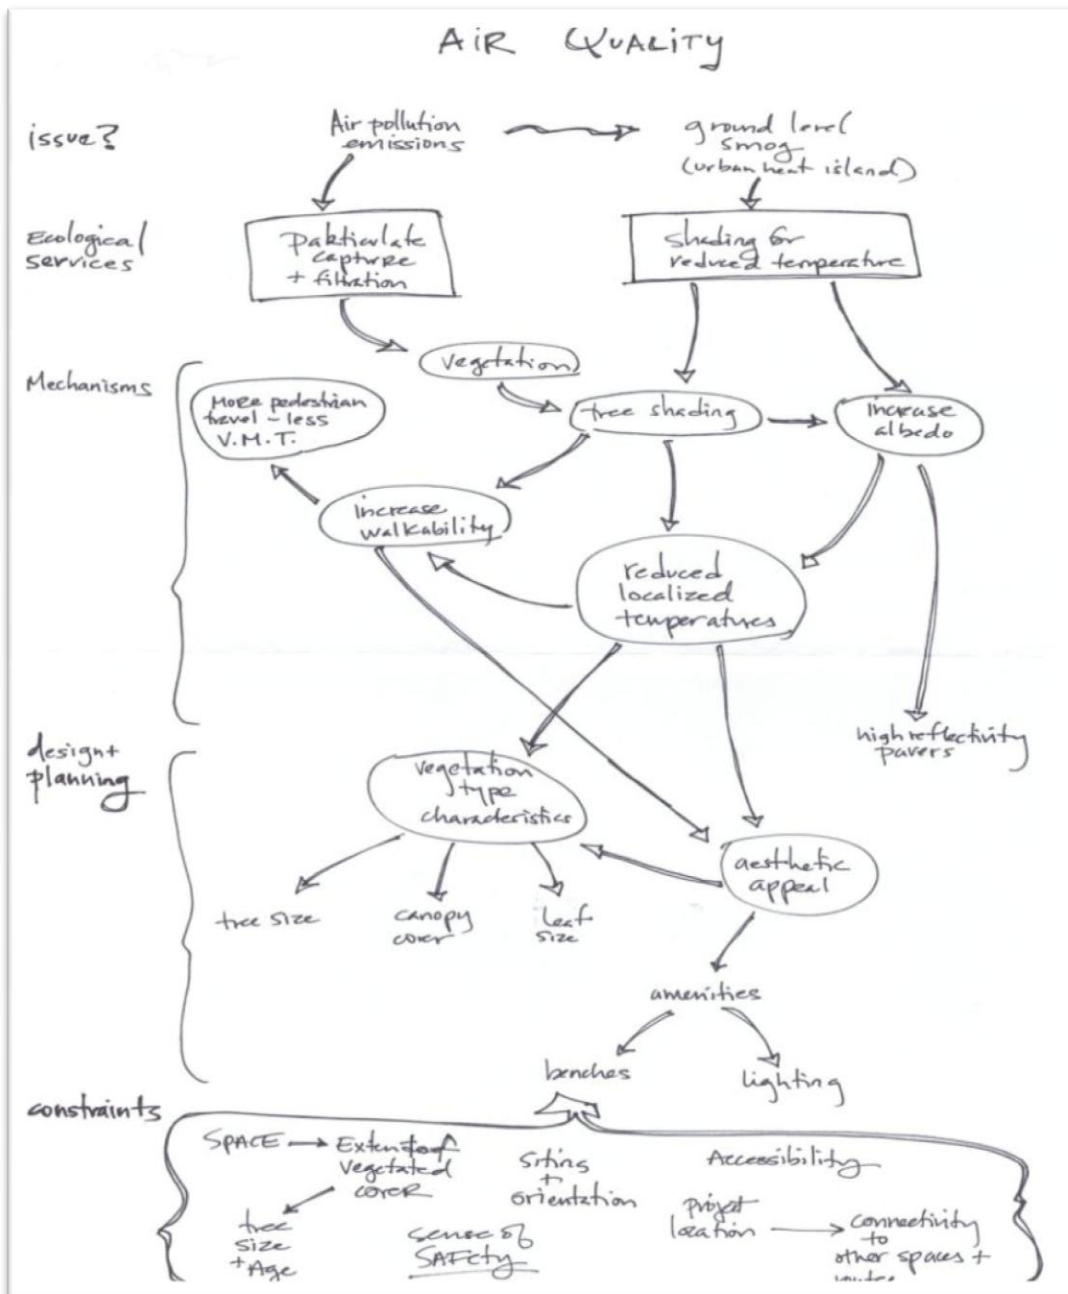 AIR QUALITY
issue?
Air pollution
emissions
ground level
smog
(urban heat island)
Ecological
services
particulate
capture
+ filtration
shading for
reduced temperature
Mechanisms
vegetation
More pedestrian
travel - less
V.M.T.
tree shading
increase
albedo
increase
walkability
reduced
localized
temperatures
high reflectivity
pavers
design +
planning
vegetation
type
characteristics
aesthetic
appeal
tree size
canopy
cover
leaf
size
amenities
benches
lighting
constraints
SPACE
Extent of
vegetated
cover
tree
size
+ Age
siting
+
orientation
sense of
SAFETY
Accessibility
project
location
connectivity
to
other spaces +